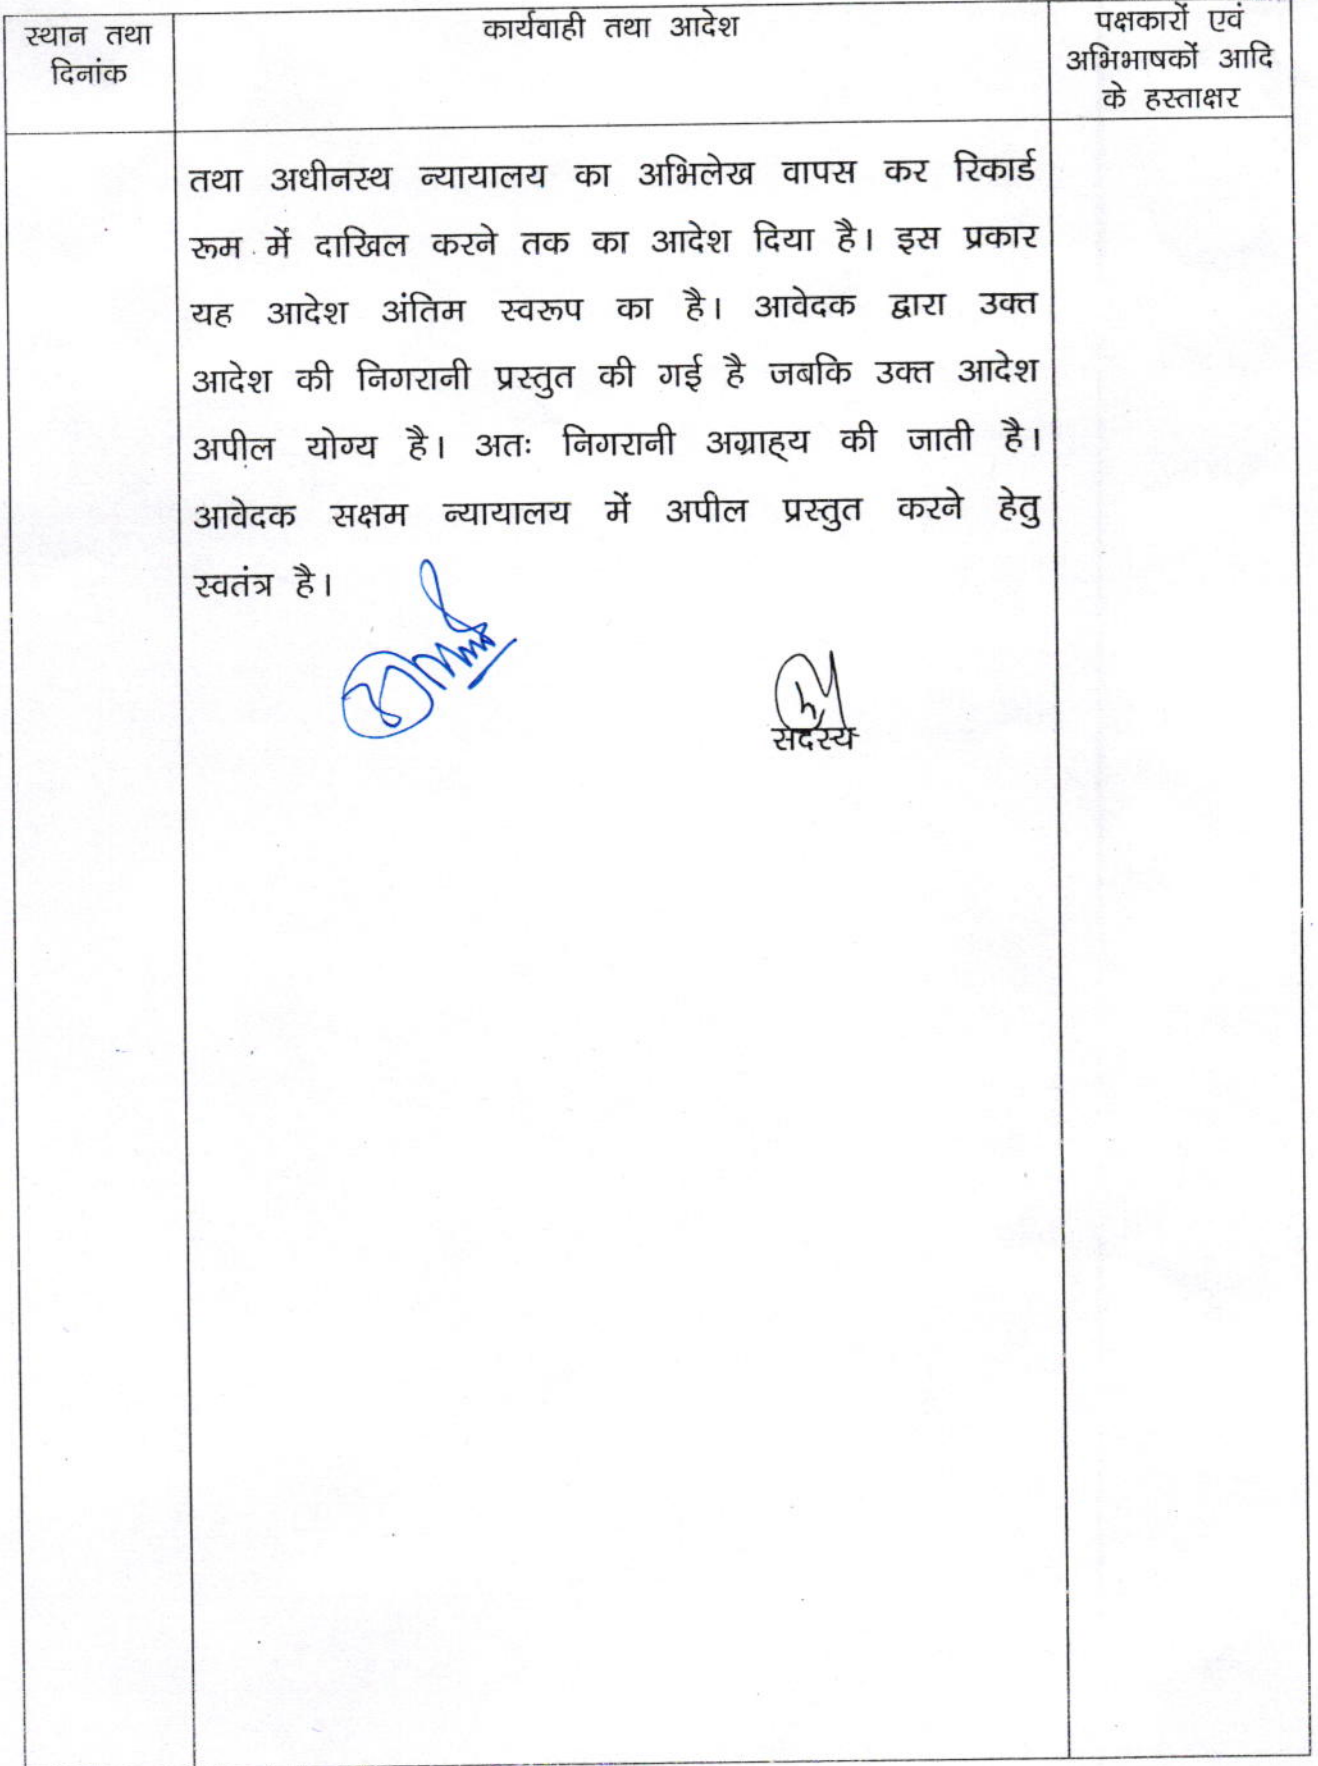 स्थान तथा
दिनांक
कार्यवाही तथा आदेश
पक्षकारों एवं
अभिभाषकों आदि
के हस्ताक्षर
तथा अधीनस्थ न्यायालय का अभिलेख वापस कर रिकार्ड
रूम में दाखिल करने तक का आदेश दिया है। इस प्रकार
यह आदेश अंतिम स्वरूप का है। आवेदक द्वारा उक्त
आदेश की निगरानी प्रस्तुत की गई है जबकि उक्त आदेश
अपील योग्य है। अतः निगरानी अग्राह्य की जाती है।
आवेदक सक्षम न्यायालय में अपील प्रस्तुत करने हेतु
स्वतंत्र है।
सदस्य